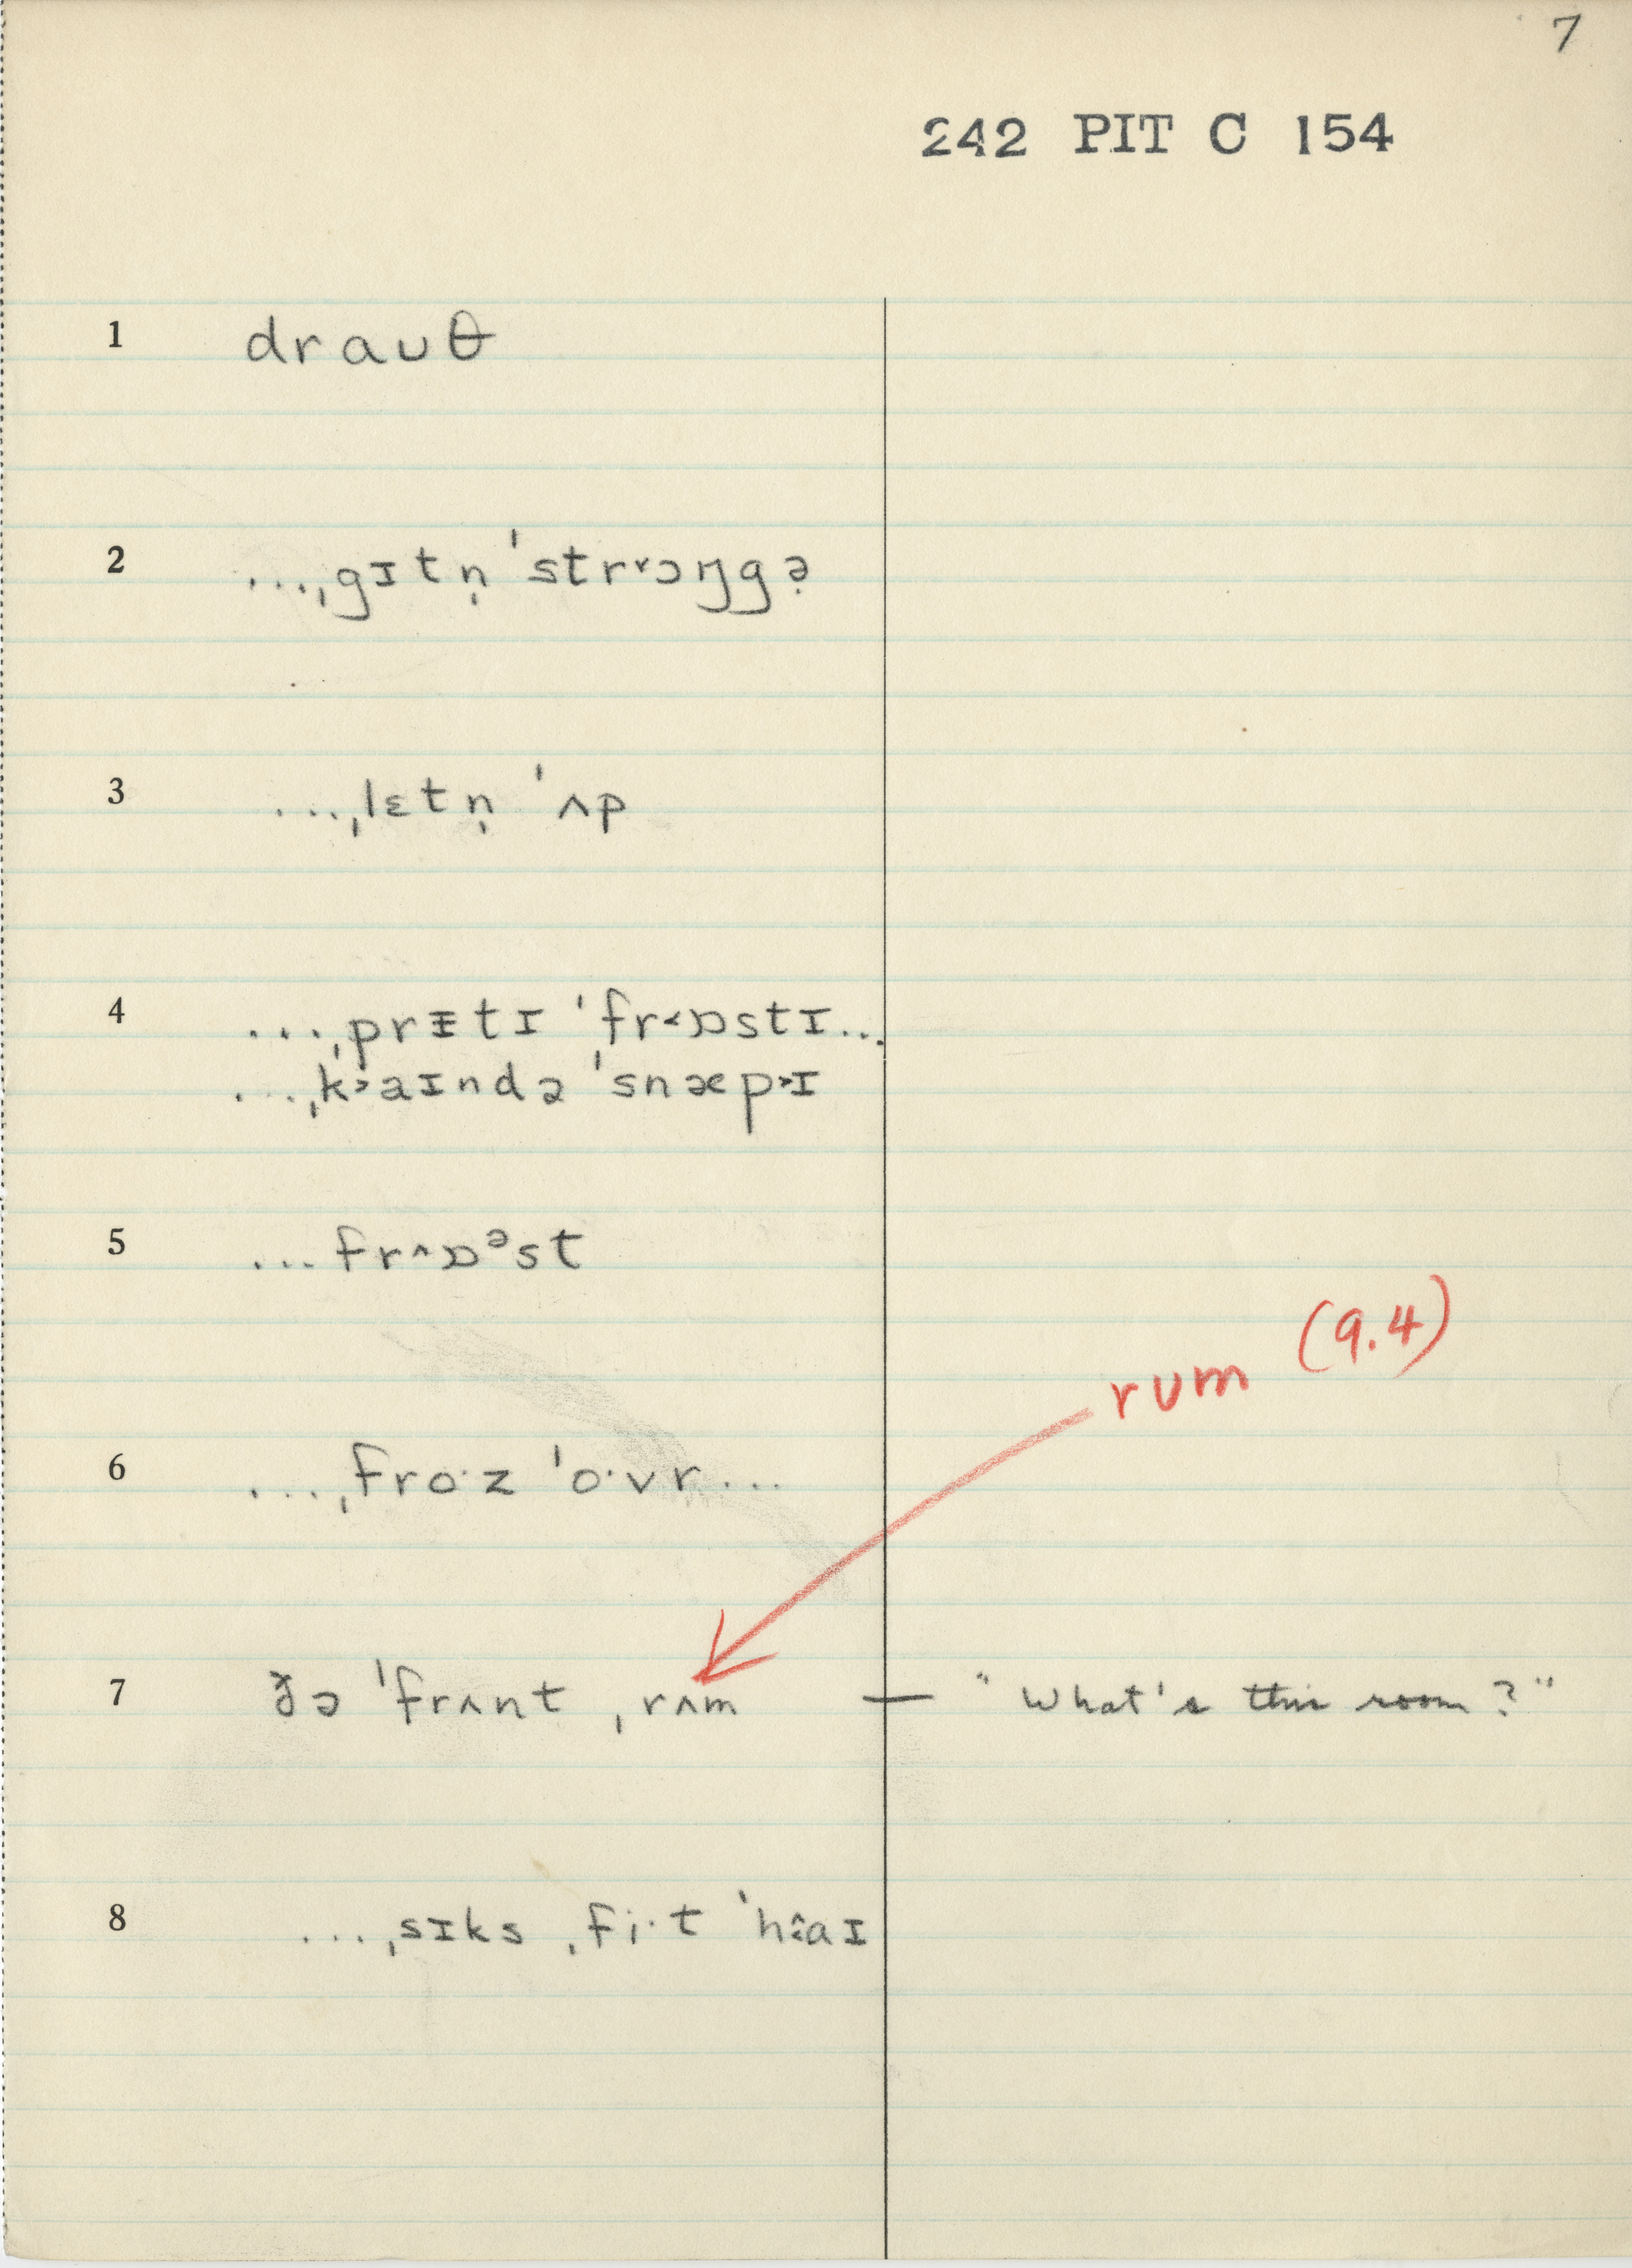 7
242 PIT C 154
1 draʊθ
2 ...ˌgɪtn̩ ˈstrr˅ɔŋgə̣
3 ...ˌlɛtn̩ ˈʌp
4 ...ˌprᵻtɪ ˈfr˂ɒstɪ...
...ˌk˃aɪndə ˈsnæp˃ɪ
5 ...fr˄ɒᵊst
rʊm (9.4)
6 ...ˌfro·z ˈo·vr...
7 ðə ˈfrʌnt ˌrʌm — "What's this room?"
8 ...ˌsɪks ˌfi·t ˈhaɪ